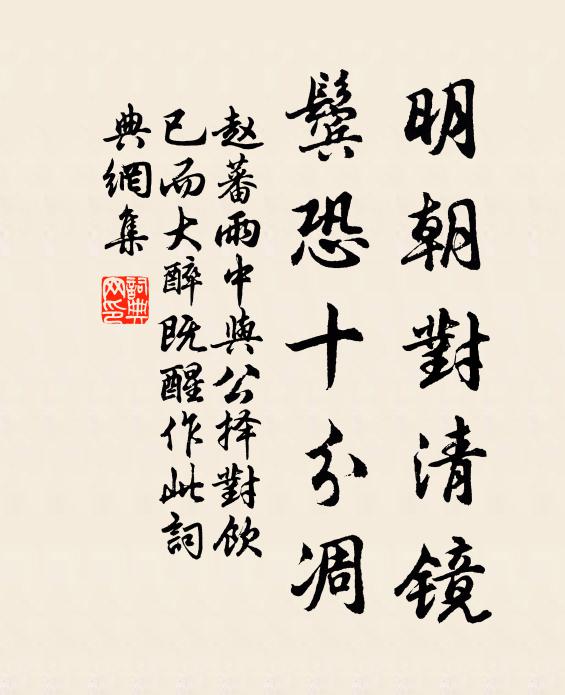 明朝對清镜
鬓恐十分凋
赵蕃雨中與公择對飲
已而大醉既醒作此詞
典網集
詞典网印